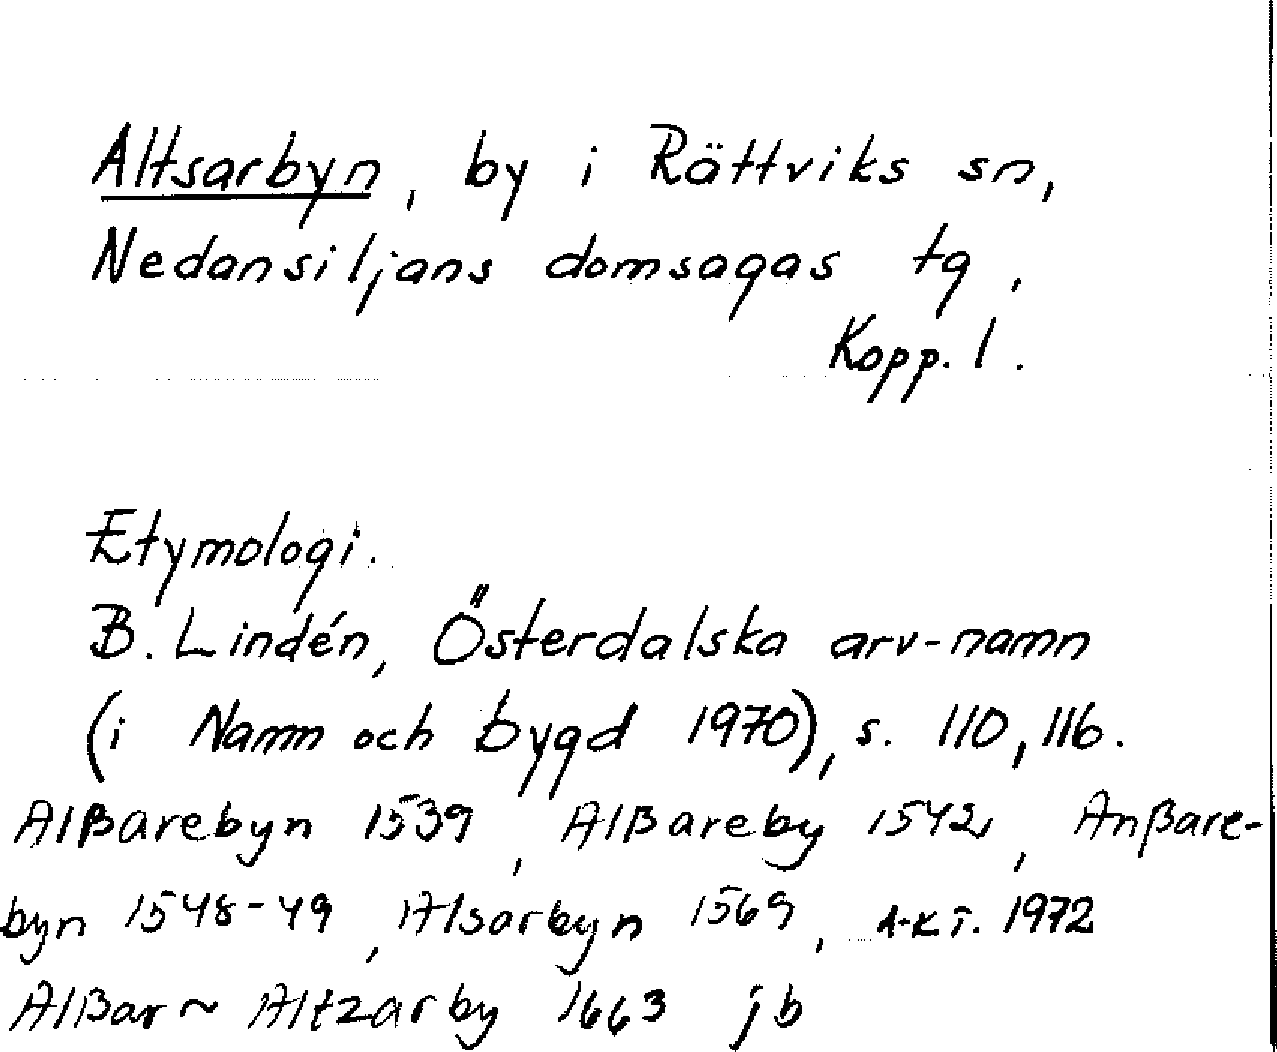 Altsarbyn, by i Rättviks sn,
Nedansiljans domsagas tg,
Kopp. l.
Etymologi.
B. Lindén, Österdalska arv-namn
(i Namn och bygd 1970), s. 110, 116.
Alßarebyn 1539, Alßareby 1542, Anßare-
byn 1548-49, Alsarbyn 1569, A-K T. 1972
Alßar~ Altzarby 1663 jb